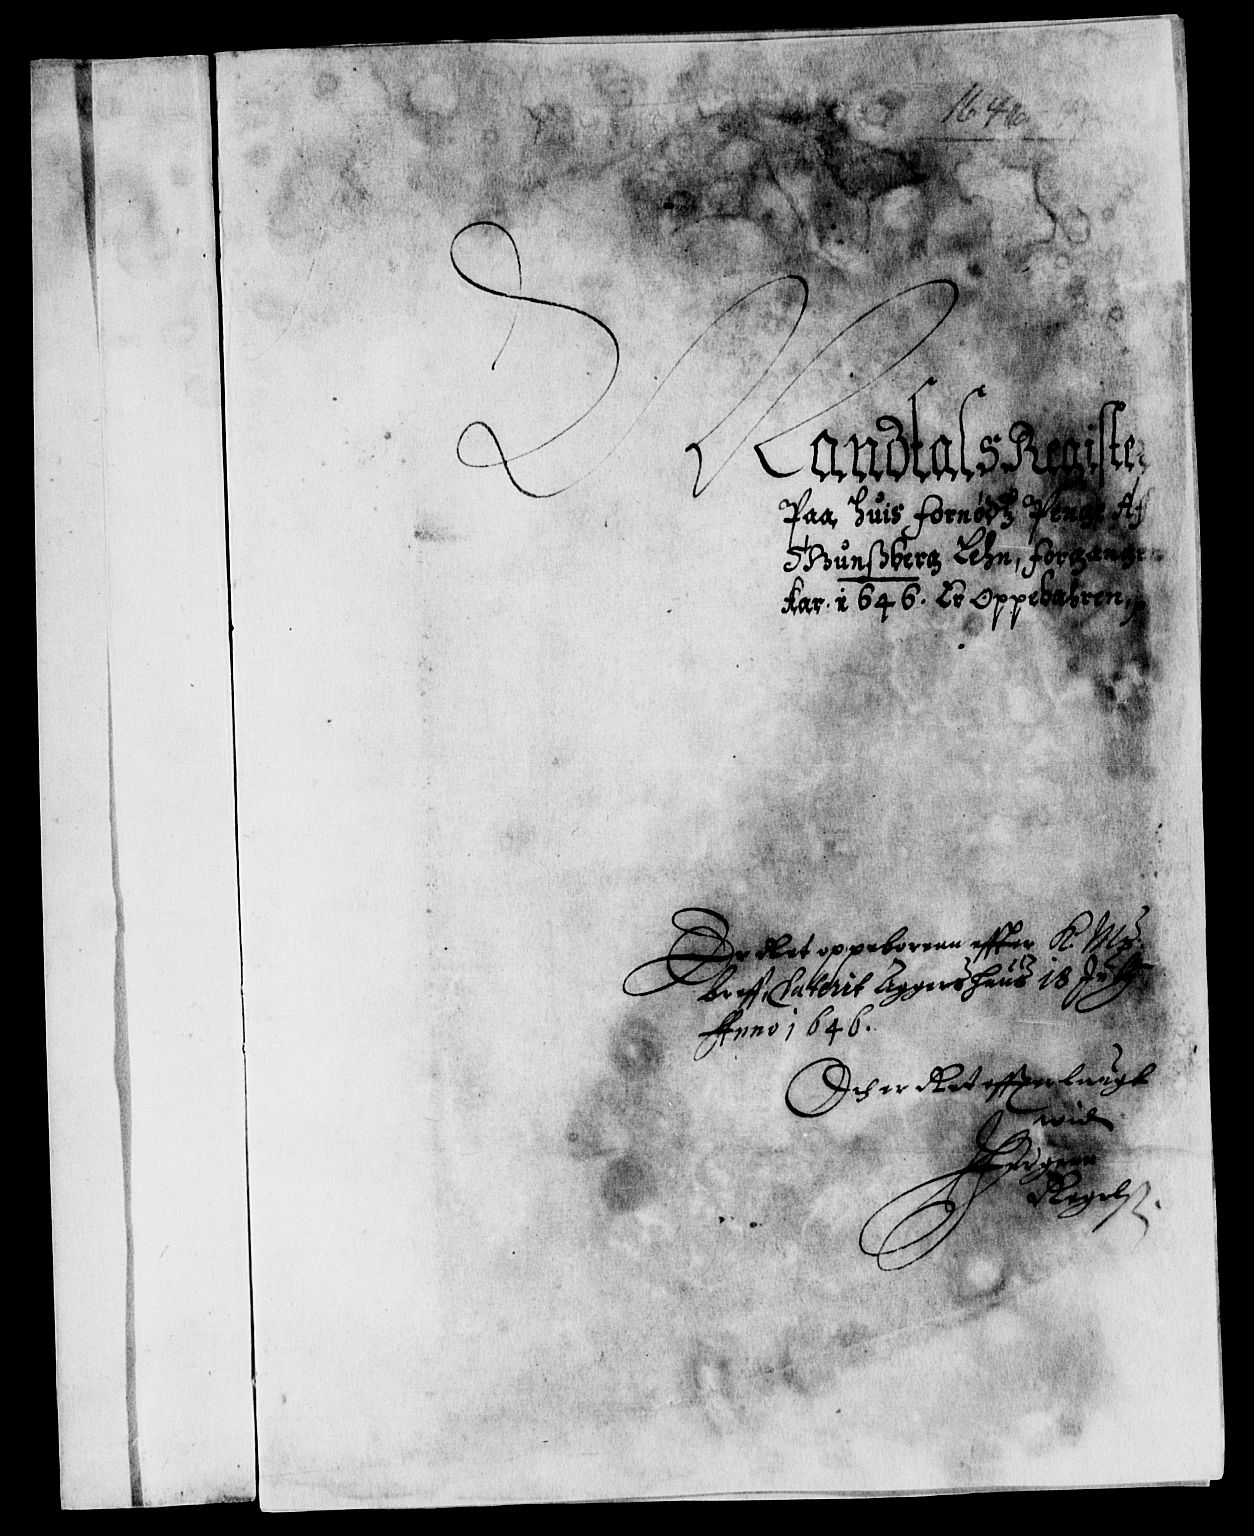 1646
Mandtals Register
Paa, huis fornødz Penge Af
Brunßberg Lehn, forgangen
Aar. i646. Er Oppebahren,
Er dket oppeborenn effter K. Mtz:
breff, Daterit Aggershuus 18 July
Anno i646.
Och er dket effterlaugt
wid
Jørgenn